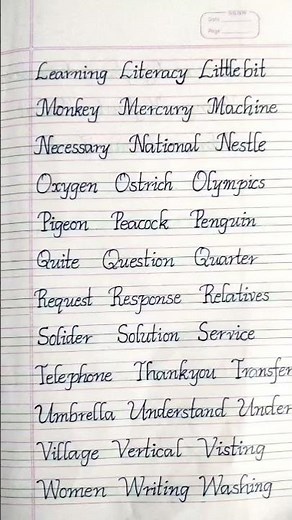 Date
Page
Learning Literacy Little bit
Monkey Mercury Machine
Necessary National Nestle
Oxygen Ostrich Olympics
Pigeon Peacock Penguin
Quite Question Quarter
Request Response Relatives
Solider Solution Service
Telephone Thankyou Transfer
Umbrella Understand Under
Village Vertical Visting
Women Writing Washing